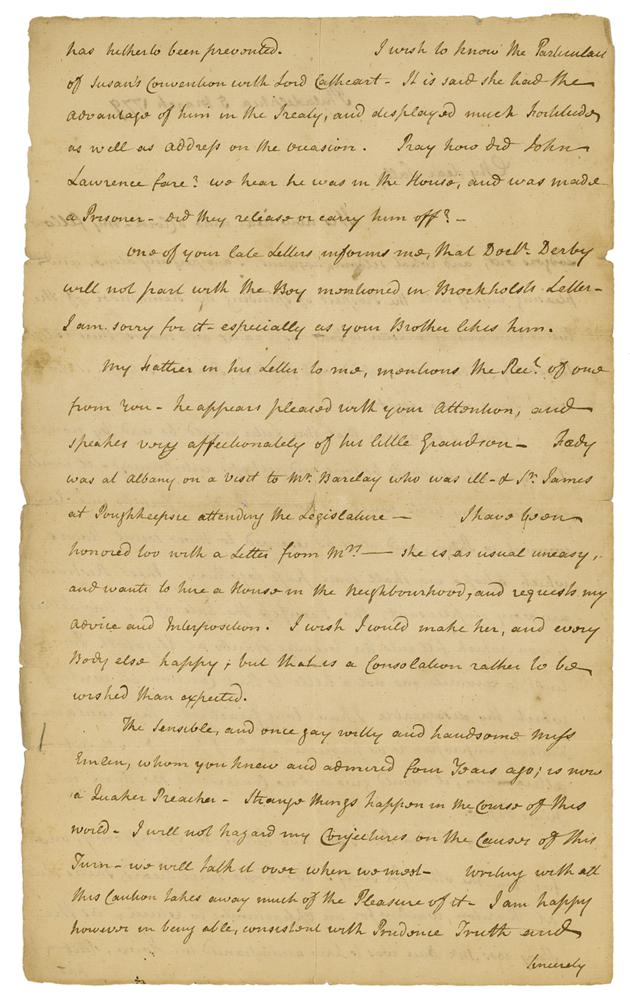 has hitherto been prevented. I wish to know the Particulars
of Susan's Convention with Lord Cathcart - It is said she had the
advantage of him in the Treaty, and displayed much Fortitude
as well as address on the occasion. Pray how did John
Lawrence fare? we hear he was in the House, and was made
a Prisoner - did they release or carry him off? -
one of your late Letters informs me, that Doctr. Derby
will not part with the Boy mentioned in Brockholsts Letter -
I am sorry for it - especially as your Brother likes him.
My Father in his Letter to me, mentions the Rect. of one
from you - he appears pleased with your Attention, and
speaks very affectionately of his little Grandson - Fædy
was at Albany on a visit to Mr. Barclay who was ill - & Sr. James
at Poughkeepsie attending the Legislature — I have been
honored too with a Letter from Mrs — she is as usual uneasy,
and wants to hire a House in the Neighbourhood, and requests my
advice and Interposition. I wish I could make her, and every
Body else happy; but that is a Consolation rather to be
wished than expected.
The Sensible, and once gay witty and handsome Miss
Emlen, whom you knew and admired four Years ago; is now
a Quaker Preacher - Strange things happen in the Course of this
world - I will not hazard my Conjectures on the Causes of this
Turn - we will talk it over when we meet - Writing with all
this Caution takes away much of the Pleasure of it - I am happy
however in being able, consistent with Prudence Truth and
Sincerely